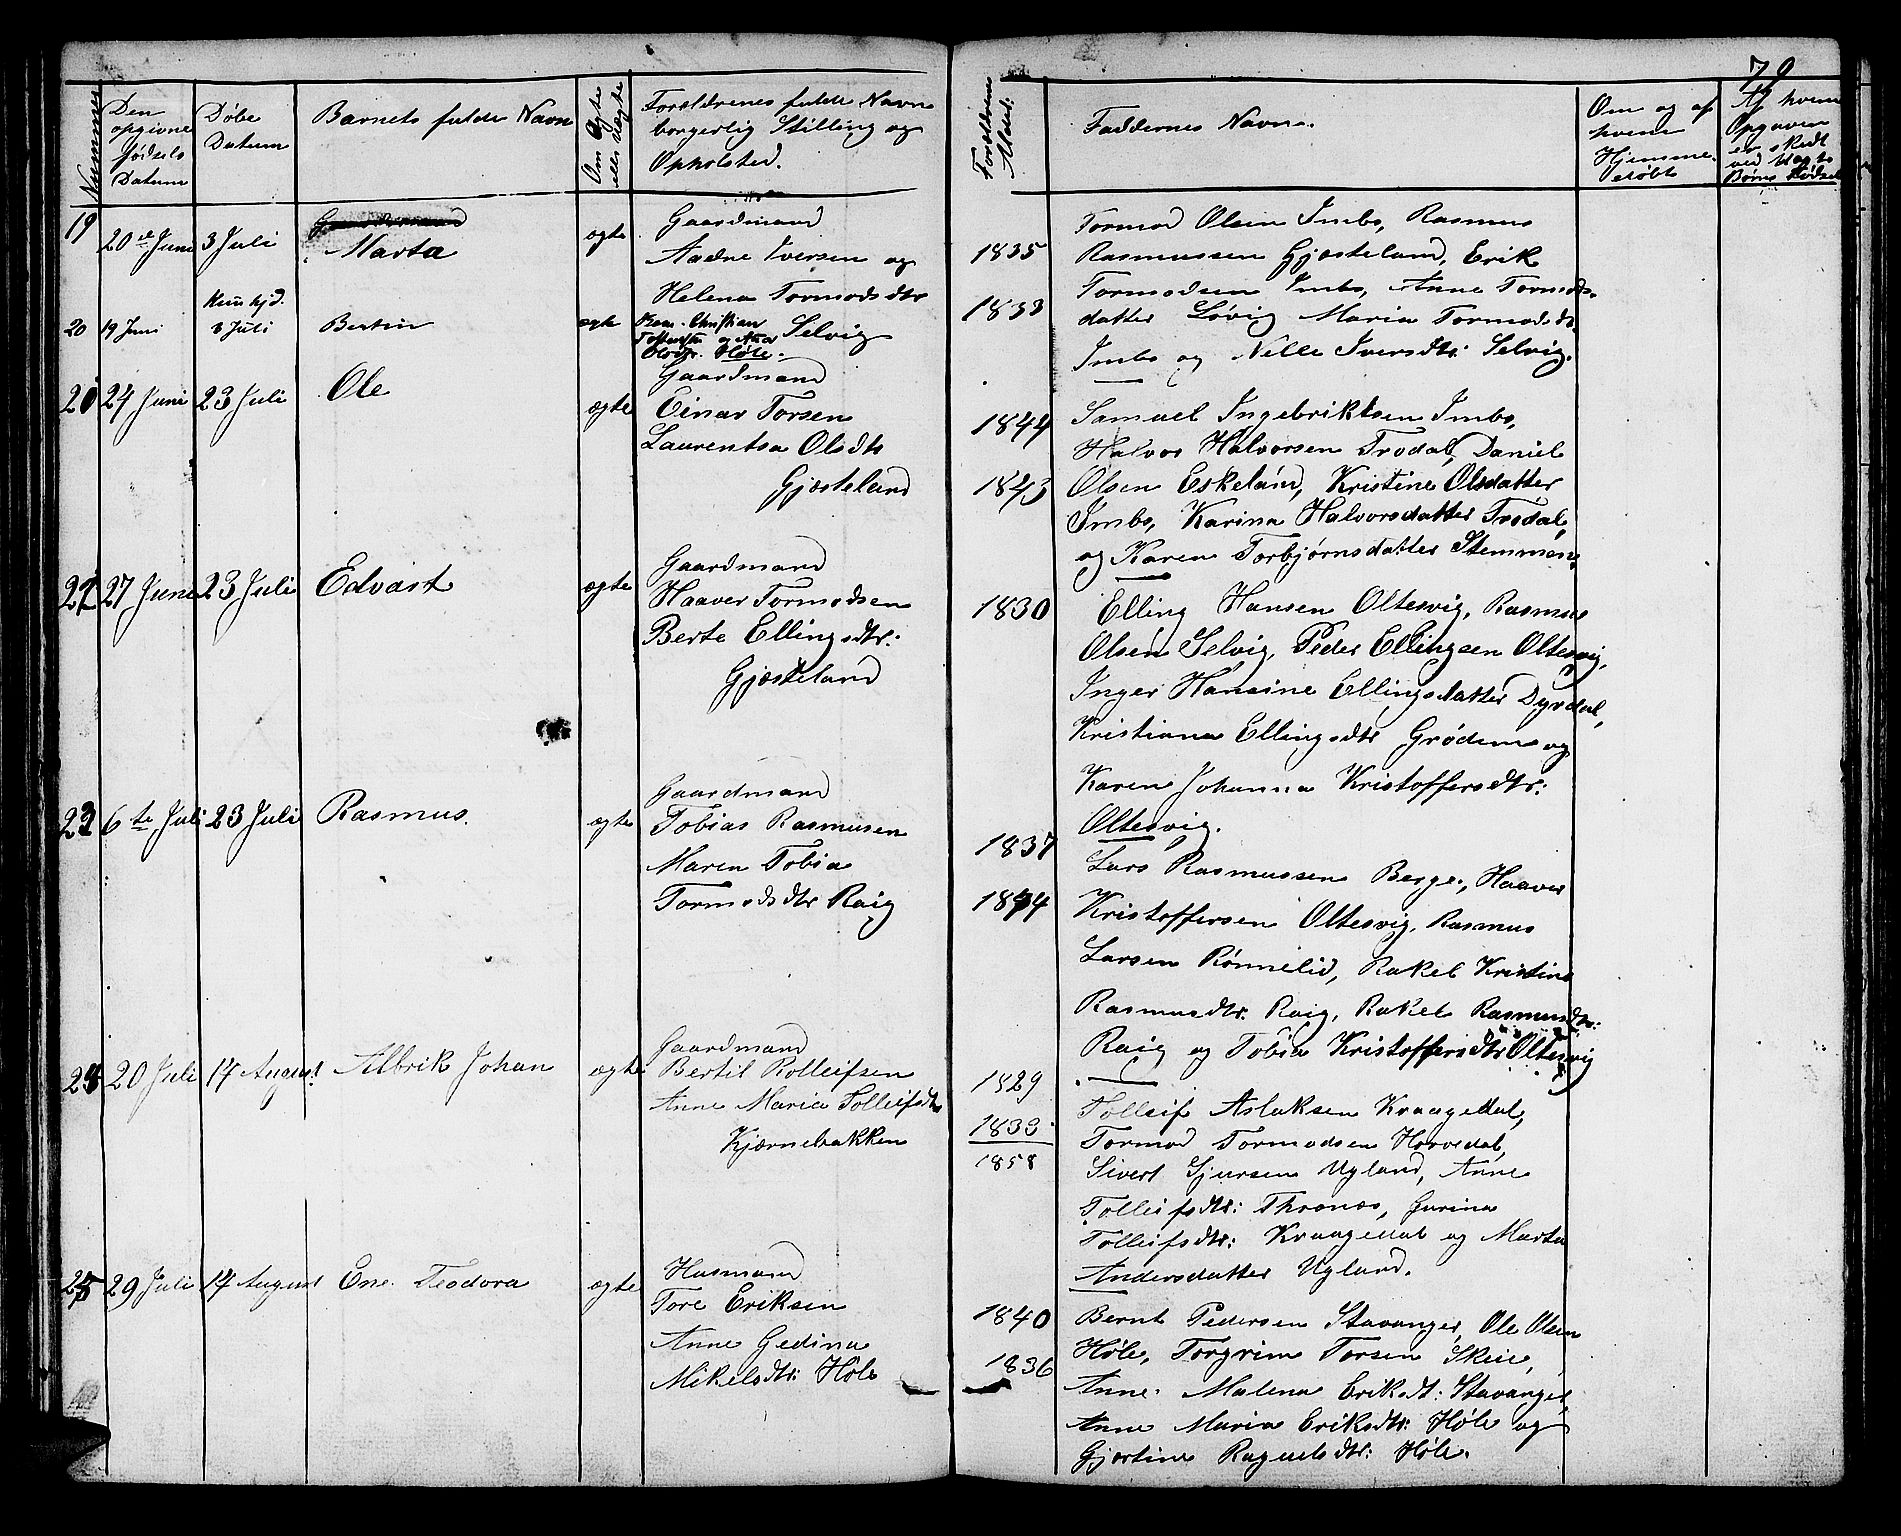 79
Nummer
Den
opgivne
fødsels
Datum
Døbe
Datum
Barnets fulde Navn
Om Ægte
eller uægte
Forældrenes fulde Navn
borgerlig Stilling og
Opholsted.
Forældrenes
Alder.
Faddernes Navne.
Om og af
hvem
Hjemme-
døbt
Af hvem
Opgaven
er skedt
ved uægte
Børns Fødsel
19
20de Juni
3 Juli
Marta
ægte
Gaardmand
Aadne Iversen og
Helena Tormodsdtr
Selvig
1835
1833
Tormod Olsen Imbs, Rasmus
Rasmussen Gjesteland, Erik
Tormodsen Imbs, Anne Tormods-
datter Løvig Maria Tormodsdtr.
Imbs og Nille Iversdtr: Selvig.
20
19 Juni
3 Juli
Bertin
ægte
Christian
Høle.
21 24 Juni 23 Juli
Ole
ægte
Gaardmand
Einar Torsen
Laurentsa Olsdtr
Gjesteland
1844
1843
Samuel Ingebriktsen Imbs,
Halvor Halvorsen Trodal, Daniel
Olsen Eskeland, Kristine Olsdatter
Imbs, Karina Halvorsdatter Trodal,
og Karen Torbjørnsdatter Stemmen.
22 27 Juni 23 Juli
Edvart
ægte
Gaardmand
Haaver Tormodsen
Berte Ellingsdtr:
Gjesteland
1830
Elling Hansen Oltesvig, Rasmus
Olsen Selvig, Peder Ellingsen Oltesvig,
Inger Hansine Ellingsdatter Dyrdal,
Kristiana Ellingsdtr Grødem og
Karen Johanna Kristoffersdtr:
Oltesvig.
23 6te Juli 23 Juli
Rasmus.
ægte
Gaardmand
Tobias Rasmusen
Maren Tobia
Tormodsdtr Raig
1837
1844
Lars Rasmussen Berge, Haaver
Kristoffersen Oltesvig, Rasmus
Larsen Rønnelid, Rakel Kristine
Rasmusdtr: Raig, Rakel Rasmusdtr:
Raig og Tobia Kristoffersdtr Oltesvig
24 20 Juli 14 August
Albrik Johan
ægte
Gaardmand
Bertil Rolleifsen
Anne Maria Tolleifsdtr
Kjærnebakken
1829
1833
1858
Tolleif Aslaksen Kraagedal,
Tormod Tormodsen Hovedal,
Sivert Sjursen Ugland, Anne
Tolleifsdtr: Thranes, Jurina
Tolleifsdtr: Kraagedal og Marta
Andersdatter Ugland.
25 29 Juli 14 August
Ene Teodora
ægte
Husmand
Tore Eriksen
Anne Gedina
Mikelsdtr: Høle
1840
1836
Bernt Pedersen Stavanger, Ole Olsen
Høle, Torgrim Torsen Skeie,
Anne Malena Eriksdt: Stavanger,
Anne Maria Eriksdtr: Høle og
Gjertine Raguelsdtr: Høle.